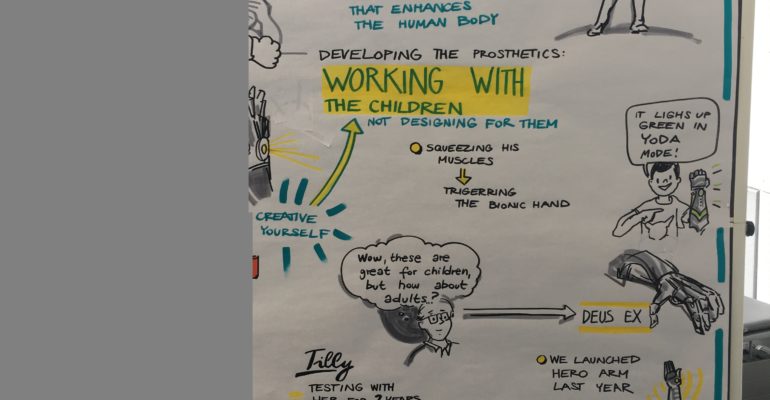 THAT ENHANCES
THE HUMAN BODY
DEVELOPING THE PROSTHETICS:
WORKING WITH
THE CHILDREN
NOT DESIGNING FOR THEM
SQUEEZING HIS
MUSCLES
TRIGERRING
THE BIONIC HAND
IT LIGHS UP
GREEN IN
YODA
MODE!
CREATIVE
YOURSELF
Wow, these are
great for children,
but how about
adults..?
DEUS EX
Tilly
TESTING WITH
HER FOR 2 YEARS
WE LAUNCHED
HERO ARM
LAST YEAR